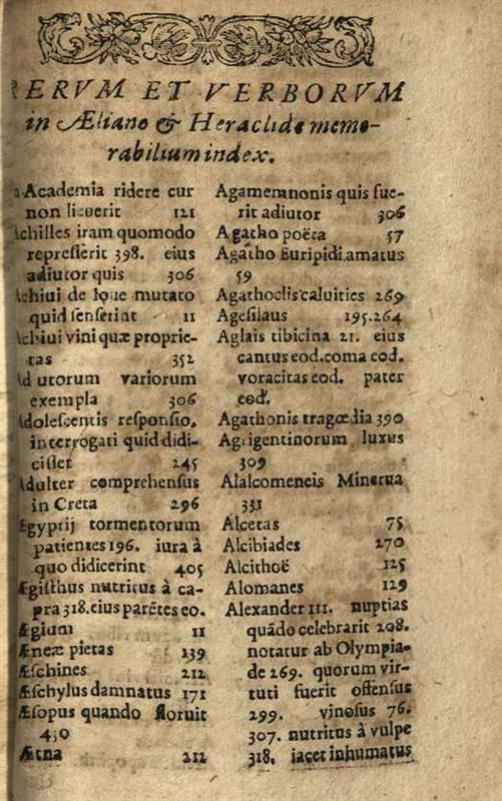 RERVM ET VERBORVM
in Æliano & Heraclide memo-
rabilium index.
Academia ridere cur
non licuerit 121
Achilles iram quomodo
represserit 398. eius
adiutor quis 306
Achiui de Ioue mutato
quid senserint 11
Achiui vini quæ proprie-
tas 352
Adiutorum variorum
exempla 306
Adolescentis responsio,
interrogati quid didi-
cisset 245
Adulter comprehensus
in Creta 296
Ægyptij tormentorum
patientes 196. iura à
quo didicerint 405
Ægisthus nutritus à ca-
pra 318. eius parẽtes eo.
Ægium 11
Æneæ pietas 139
Æschines 212
Æschylus damnatus 171
Æsopus quando floruit
430
Ætna 212
Agamemnonis quis fue-
rit adiutor 306
Agatho poëta 57
Agatho Euripidi amatus
59
Agathoclis caluities 269
Agesilaus 195.264
Aglais tibicina 21. eius
cantus eod. coma eod.
voracitas eod. pater
eod.
Agathonis tragœdia 390
Agrigentinorum luxus
309
Alalcomeneis Minerua
331
Alcetas 75
Alcibiades 270
Alcithoë 125
Alomanes 129
Alexander III. nuptias
quãdo celebrarit 208.
notatur ab Olympia-
de 269. quorum vir-
tuti fuerit offensus
299. vinosus 76.
307. nutritus à vulpe
318. iacet inhumatus